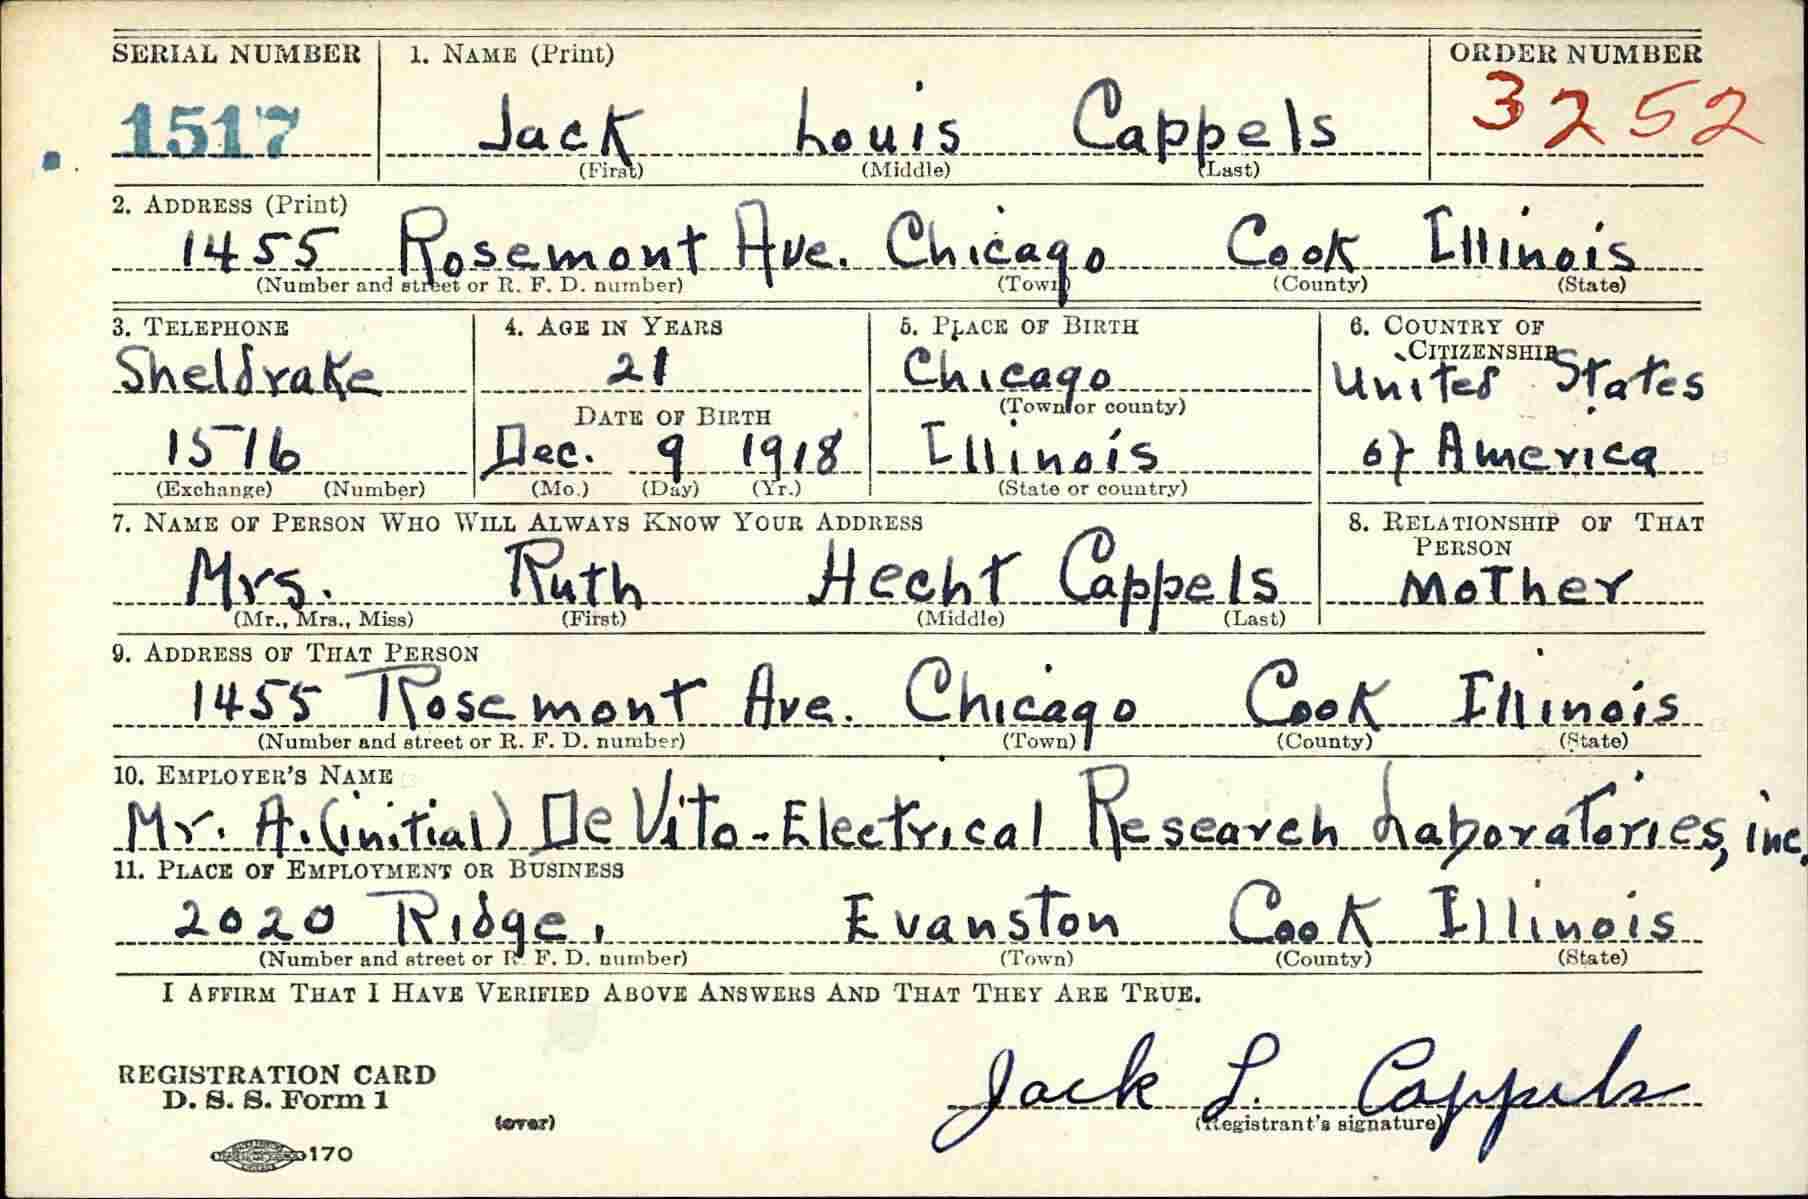 SERIAL NUMBER 1. NAME (Print) ORDER NUMBER
1517 Jack Louis Cappels 3252
(First) (Middle) (Last)
2. ADDRESS (Print)
1455 Rosemont Ave. Chicago Cook Illinois
(Number and street or R. F. D. number) (Town) (County) (State)
3. TELEPHONE 4. AGE IN YEARS 5. PLACE OF BIRTH 6. COUNTRY OF
CITIZENSHIP
Sheldrake 21 Chicago United States
DATE OF BIRTH (Town or county)
1576 Dec. 9 1918 Illinois of America
(Exchange) (Number) (Mo.) (Day) (Yr.) (State or country)
7. NAME OF PERSON WHO WILL ALWAYS KNOW YOUR ADDRESS 8. RELATIONSHIP OF THAT
PERSON
Mrs. Ruth Hecht Cappels Mother
(Mr., Mrs., Miss) (First) (Middle) (Last)
9. ADDRESS OF THAT PERSON
1455 Rosemont Ave. Chicago Cook Illinois
(Number and street or R. F. D. number) (Town) (County) (State)
10. EMPLOYER'S NAME
Mr. A. (initial) De Vito - Electrical Research Laboratories, inc.
11. PLACE OF EMPLOYMENT OR BUSINESS
2020 Ridge, Evanston Cook Illinois
(Number and street or R. F. D. number) (Town) (County) (State)
I AFFIRM THAT I HAVE VERIFIED ABOVE ANSWERS AND THAT THEY ARE TRUE.
REGISTRATION CARD
D. S. S. Form 1 Jack L. Cappels
(over) (Registrant's signature)
170